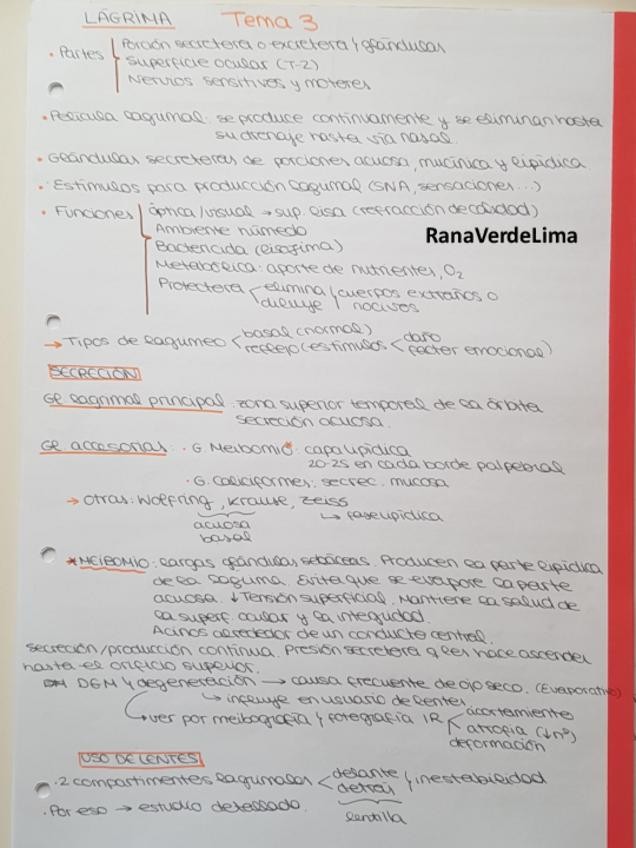 LÁGRIMA Tema 3
• Partes Porción secretora o excretora y glándulas
Superficie ocular (T-2)
Nervios sensitivos y motores
• Película lagrimal: se produce continuamente y se eliminan hasta
su drenaje hasta vía nasal.
• Glándulas secretoras de porciones acuosa, mucínica y lipídica.
• Estímulos para producción lagrimal (SNA, sensaciones...)
• Funciones óptica/visual → sup. lisa (refracción de calidad)
Ambiente húmedo
RanaVerdeLima
Bactericida (lisozima)
Metabólica: aporte de nutrientes, O2
Protectora elimina / cuerpos extraños o
diluye nocivos
→ Tipos de lagrimeo < basal (normal)
reflejo (estímulos < daño
factor emocional)
SECRECIÓN
Gl lagrimal principal: zona superior temporal de la órbita
secreción acuosa.
Gl accesorias: • G. Meibomio*: capa lipídica
20-25 en cada borde palpebral
• G. Caliciformes: secrec. mucosa
→ Otras: Wolfring, Krause, Zeiss
acuosa ↳ fase lipídica
basal
* MEIBOMIO: largas glándulas sebáceas. Producen la parte lipídica
de la lágrima. Evita que se evapore la parte
acuosa. ↓ Tensión superficial. Mantiene la salud de
la superf. ocular y la integridad.
Acinos alrededor de un conducto central.
Secreción/producción continua. Presión secretora q les hace ascender
hasta el orificio superior.
DGM y degeneración → causa frecuente de ojo seco. (Evaporativo)
↳ influye en usuario de lentes
↳ ver por meibografía y fotografía IR < acortamiento
atrofia (↓nº)
deformación
USO DE LENTES
• 2 compartimentos lagrimales < delante y inestabilidad
detrás
• Por eso → estudio detallado. lentilla